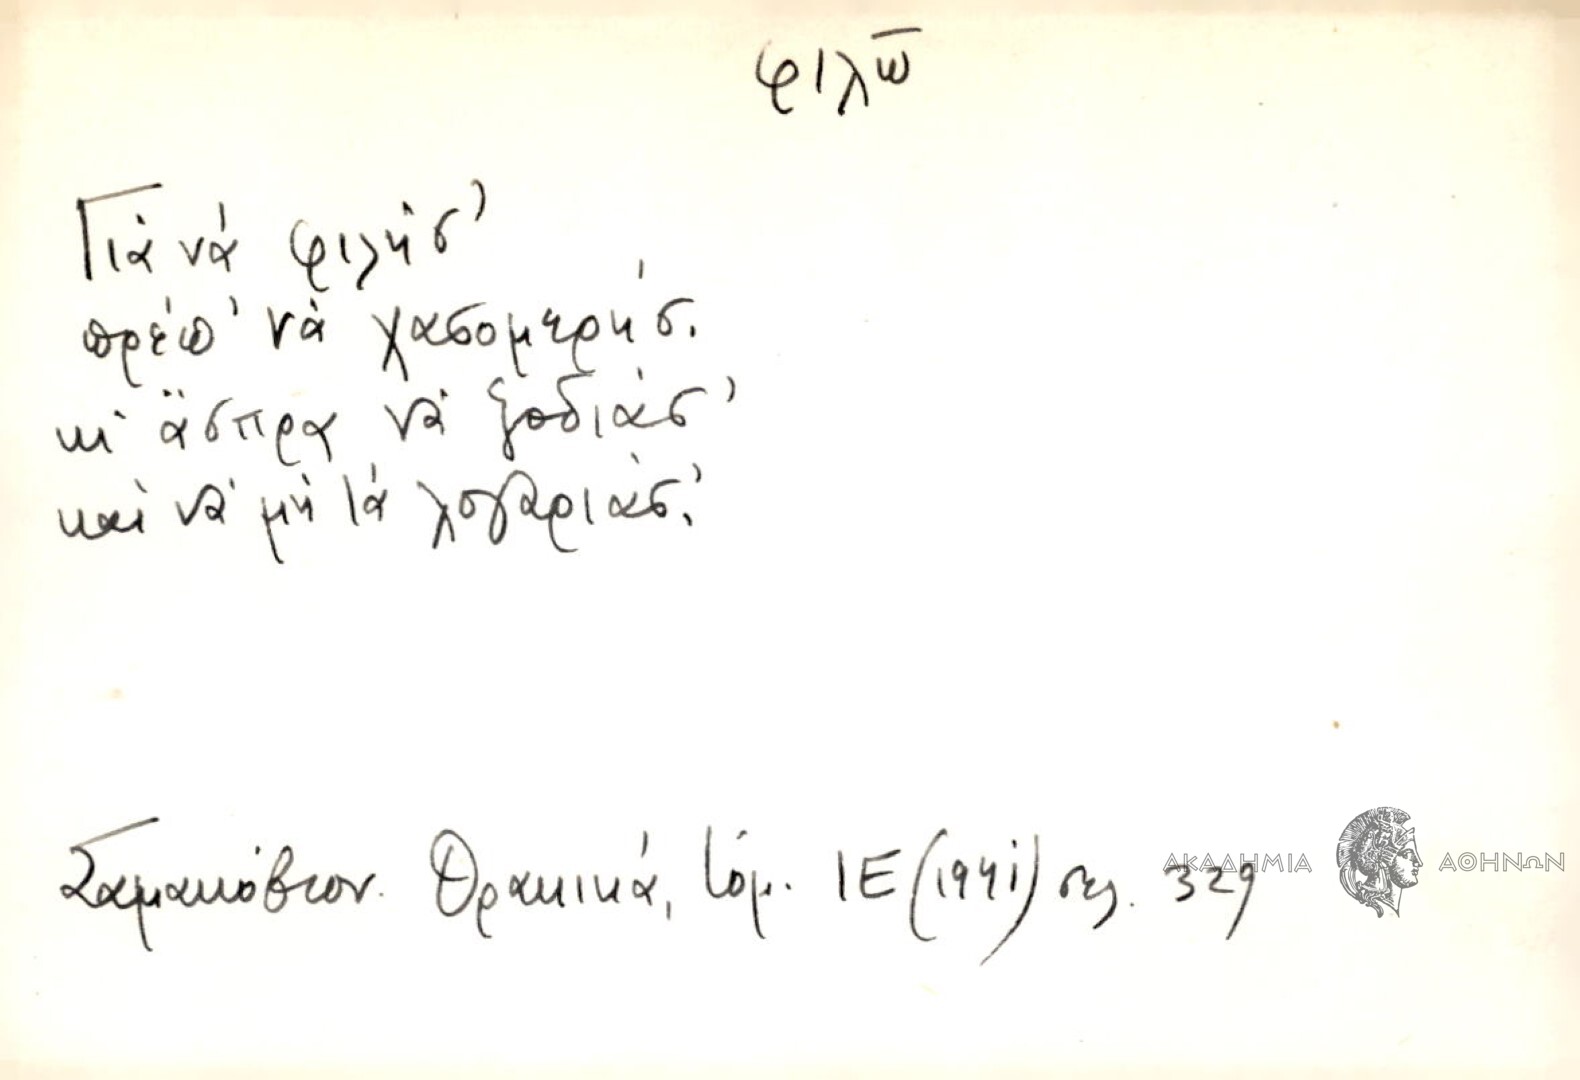 φιλῶ
Γιὰ νά φιλήσ'
πρέπ' νὰ χασομερήσ.
κι ἄσπρα νὰ ξοδιάσ'
καὶ νὰ μὴ τά λογαριάσ'.
Σαμακόβιον. Θρακικά, τόμ. ΙΕ (1941) σελ. 329
ΑΚΑΔΗΜΙΑ ΑΘΗΝΩΝ